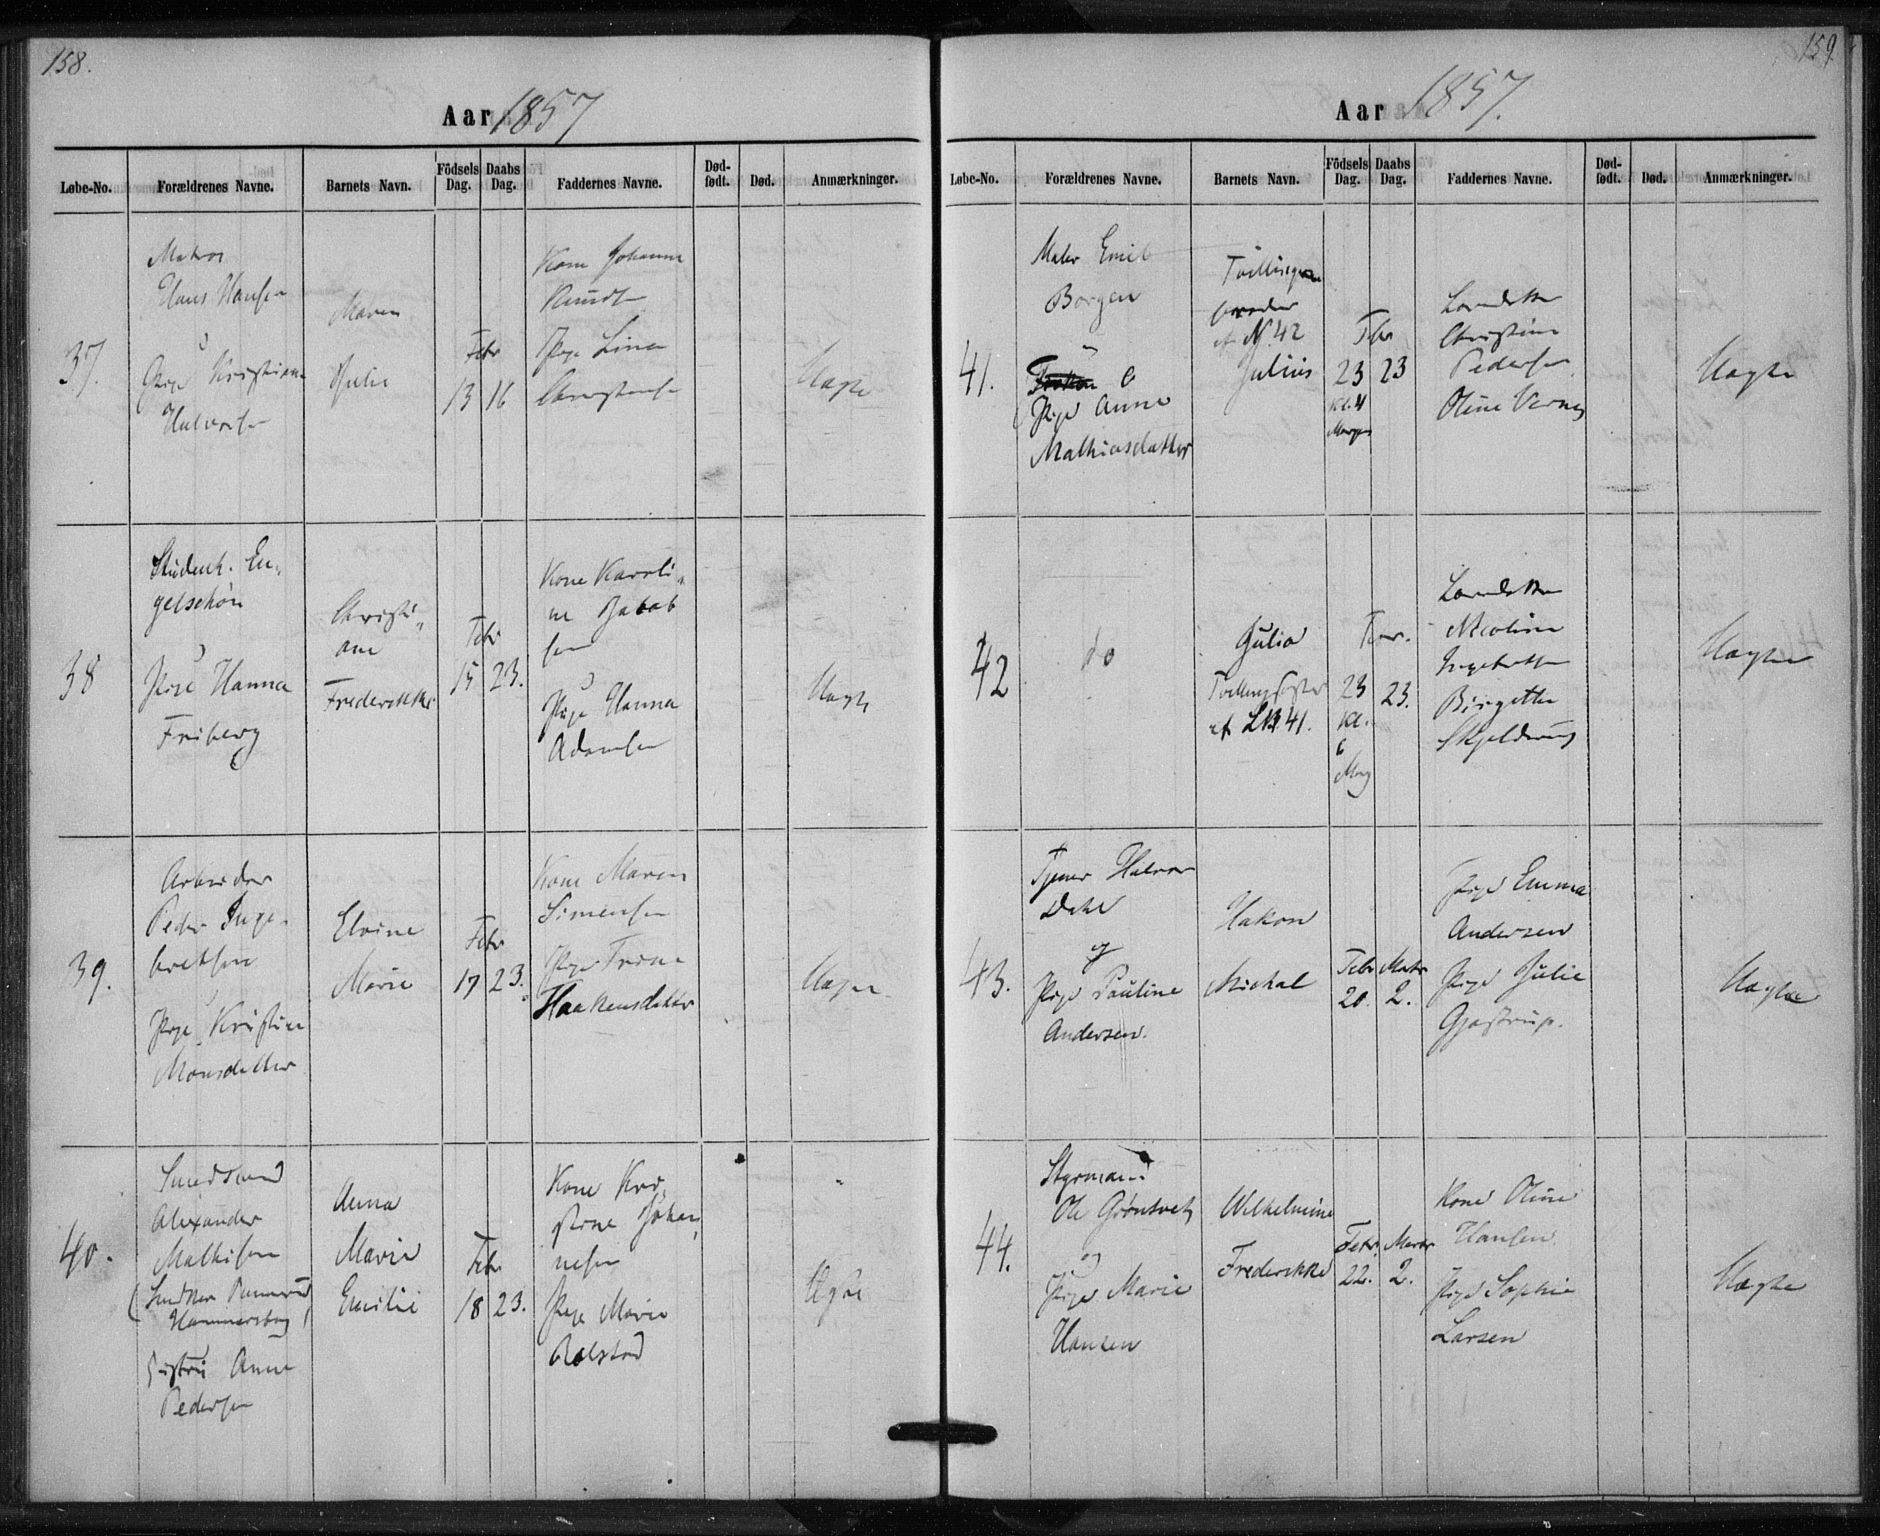 158.
Aar 1857
Løbe-No.
Forældrenes Navne.
Barnets Navn.
Födsels Dag.
Daabs Dag.
Faddernes Navne.
Død-født.
Død.
Anmærkninger.
37.
Matros
Hans Hansen
Pige Kristiane
Halvorsen
Maren
Julie
Febr
13 16
Kone Johanne
Knudsen
Pige Lina
Christensen
Uægte
38
Student. En-
gelschøn
Pige Hanna
Friberg
Christi-
ane
Frederikke
Febr
15 23.
Kone Karoli-
ne Jakob
sen
Pige Hanna
Adamsen
Uægte
39.
Arbeider
Peder Inge-
bretsen
Pige Kristine
Monsdatter
Elvine
Marie
Febr
17 23.
Kone Maren
Simensen
Pige Trine
Haakensdatter
Uægte
40.
Smedsvend
Alexander
Mathisen
Hammersborg)
Anne
Pedersen
Anna
Marie
Emilie
Febr
18 23.
Kone Kri-
stine Johan-
nesen
Pige Marie
Rolstad
Uægte
159
Aar 1857.
Løbe-No.
Forældrenes Navne.
Barnets Navn.
Födsels Dag.
Daabs Dag.
Faddernes Navne.
Død-født.
Død.
Anmærkninger.
41.
Maler Emil
Borgen
Pige Anne
Mathiasdatter
Tvillinge
broder
af N. 42
Julius
Febr
23 23
Kl. 4
Morgen
Christine
Pedersen
Oline Vernes
Uægte
42
do
Julia
Tvillingsøster
af LN 41.
Febr.
23 23.
Kl.
6
Morg
Nicoline
Ingebretsen
Birgitte
Skjelderup
Uægte
43.
Tjener Halvor
Dahl
og
Pige Pauline
Andersen.
Hakon
Michal
Febr Marts
20. 2.
Pige Emma
Andersen
Pige Julie
Gjøstrup.
Uægte
44.
Styrmand
Ole Grøntvet
og
Pige Marie
Hansen
Wilhelmine
Frederikke
Febr. Marts
22. 2.
Kone Oline
Hansen
Pige Sophie
Larsen
Uægte